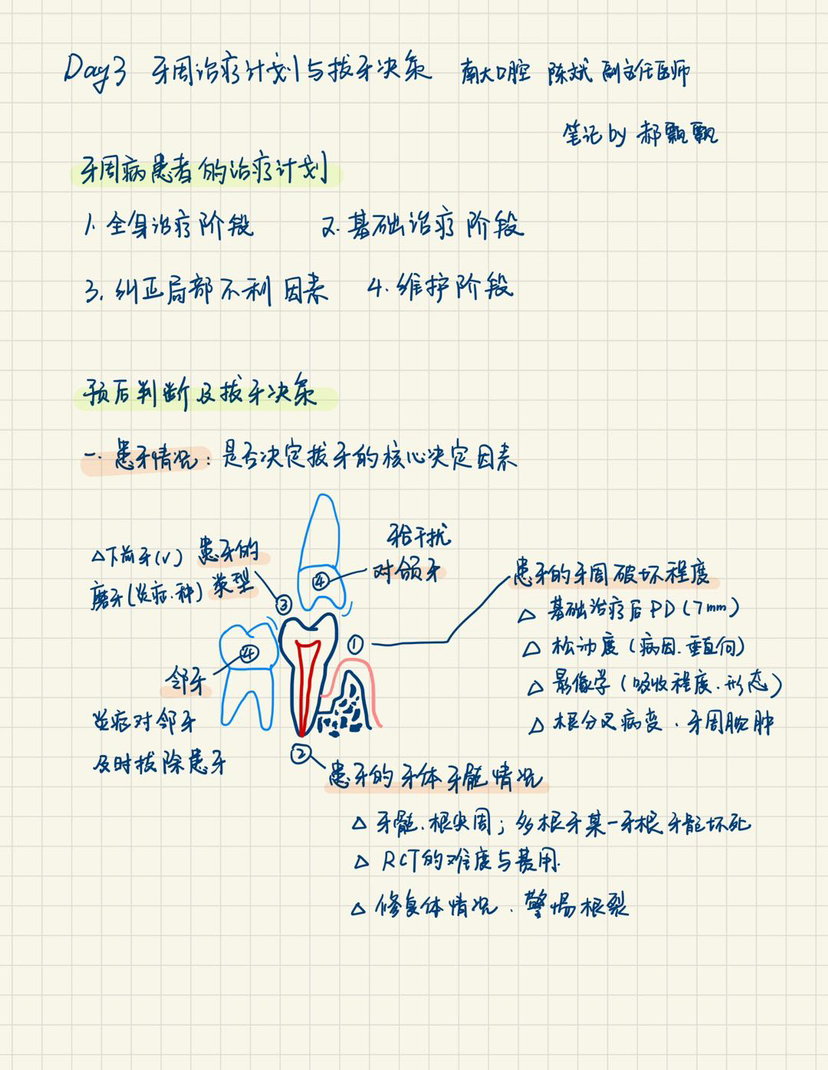 Day3 牙周治疗计划与拔牙决策 南大口腔 陈斌 副主任医师
笔记by 郝飘飘
牙周病患者的治疗计划
1. 全身治疗阶段 2. 基础治疗阶段
3. 纠正局部不利因素 4. 维护阶段
预后判断及拔牙决策
一. 患牙情况: 是否决定拔牙的核心决定因素
△下前牙(v) 患牙的
磨牙(炎症.种) 类型
③
𬌗干扰
对颌牙
④
患牙的牙周破坏程度
△ 基础治疗后PD(7mm)
△ 松动度(病因.垂直向)
△ 影像学(吸收程度.形态)
△ 根分叉病变.牙周脓肿
①
④
邻牙
炎症对邻牙
及时拔除患牙
②
患牙的牙体牙髓情况
△ 牙髓.根尖周;多根牙某一牙根牙髓坏死
△ RCT的难度与费用.
△ 修复体情况.警惕根裂